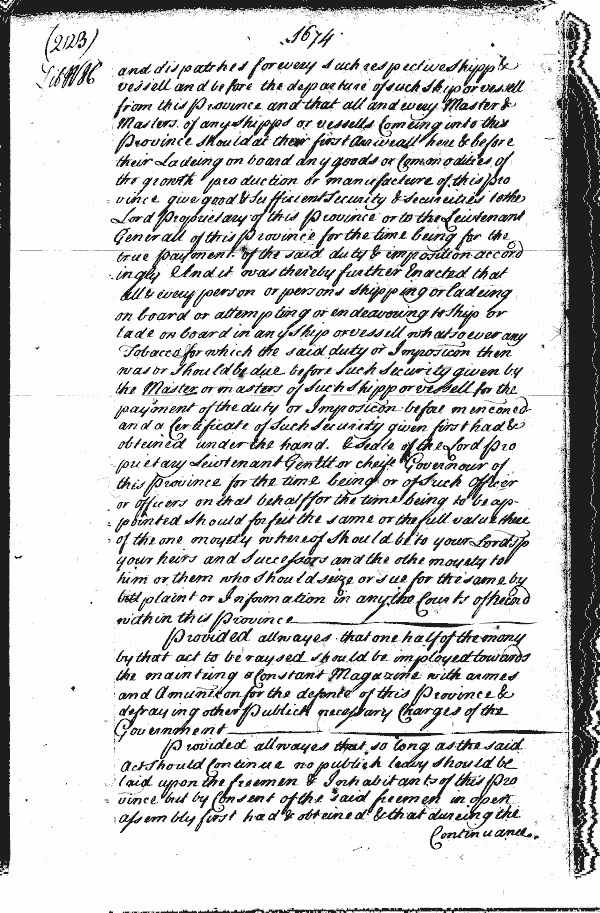 (212B)
1674
Lib WB6
and dispatches for every such respective shipp &
vessell and before the departure of such ship or vessell
from this Province and that all and every Master &
Masters of any shipps or vessells Comeing into this
Province should at their first Arriveall here & before
their Ladeing on board any goods or Commodities of
the growth production or manufacture of this Pro
vince give good & sufficient Security & Securities to the
Lord Proprietary of this Province or to the Lieutenant
Generall of this Province for the time being for the
true payment of the said duty & imposition accord
ingly And it was thereby further Enacted that
all & every person or persons shipping or ladeing
on board or attempting or endeavoring to ship or
lade on board in any ship or vessell whatsoever any
Tobacco for which the said duty or Imposicon then
was or should be due before such security given by
the Master or masters of such shipp or vessell for the
payment of the duty or Imposicon before menconed
and a Certificate of such security given first had &
obteined under the hand & seale of the Lord Pro
prietary Lieutenant Genll or cheife Governour of
this Province for the time being or of such officer
or officers on that behalf for the time being to be ap-
pointed should forfeit the same or the full value there
of the one moyety whereof should be to your Lordspp
your heirs and Successors and the othe moyety to
him or them who should seize or sue for the same by
bill plaint or Information in any the Courts of Record
within this Province
Provided allwayes that one half of the mony
by that act to be raysed should be imployed towards
the mainteing a Constant Magazine with armes
and Amunicon for the defence of this Province &
defraying other Publick necessary Charges of the
Government
Provided allwayes that so long as the said
Act should Continue no publick leavy should be
laid upon the freemen & Inhabitants of this Pro
vince but by Consent of the said freemen in open
assembly first had & obteined & that dureing the
Continuance.